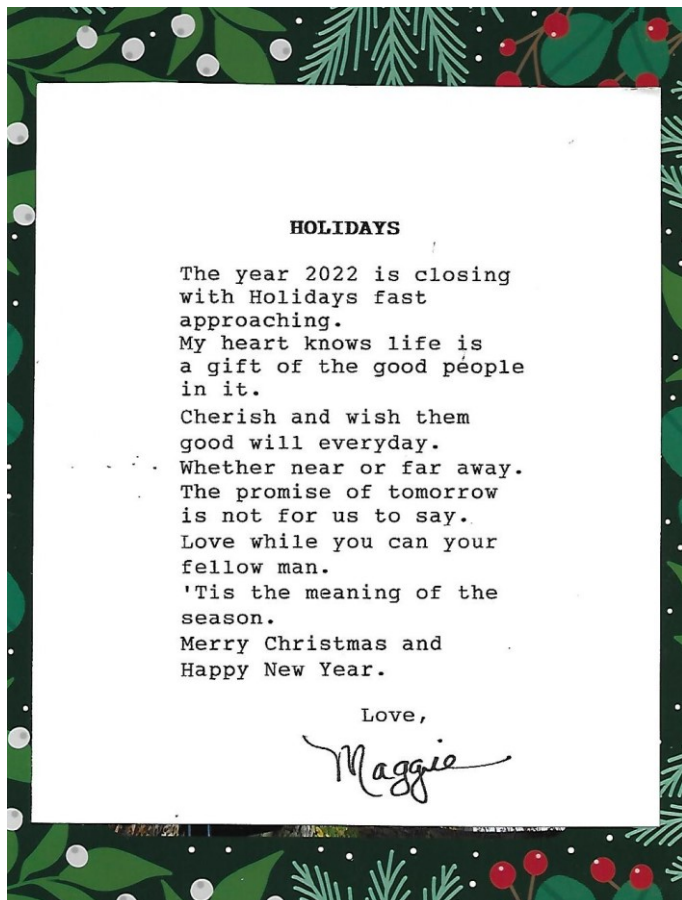 HOLIDAYS
The year 2022 is closing
with Holidays fast
approaching.
My heart knows life is
a gift of the good people
in it.
Cherish and wish them
good will everyday.
Whether near or far away.
The promise of tomorrow
is not for us to say.
Love while you can your
fellow man.
'Tis the meaning of the
season.
Merry Christmas and
Happy New Year.
Love,
Maggie